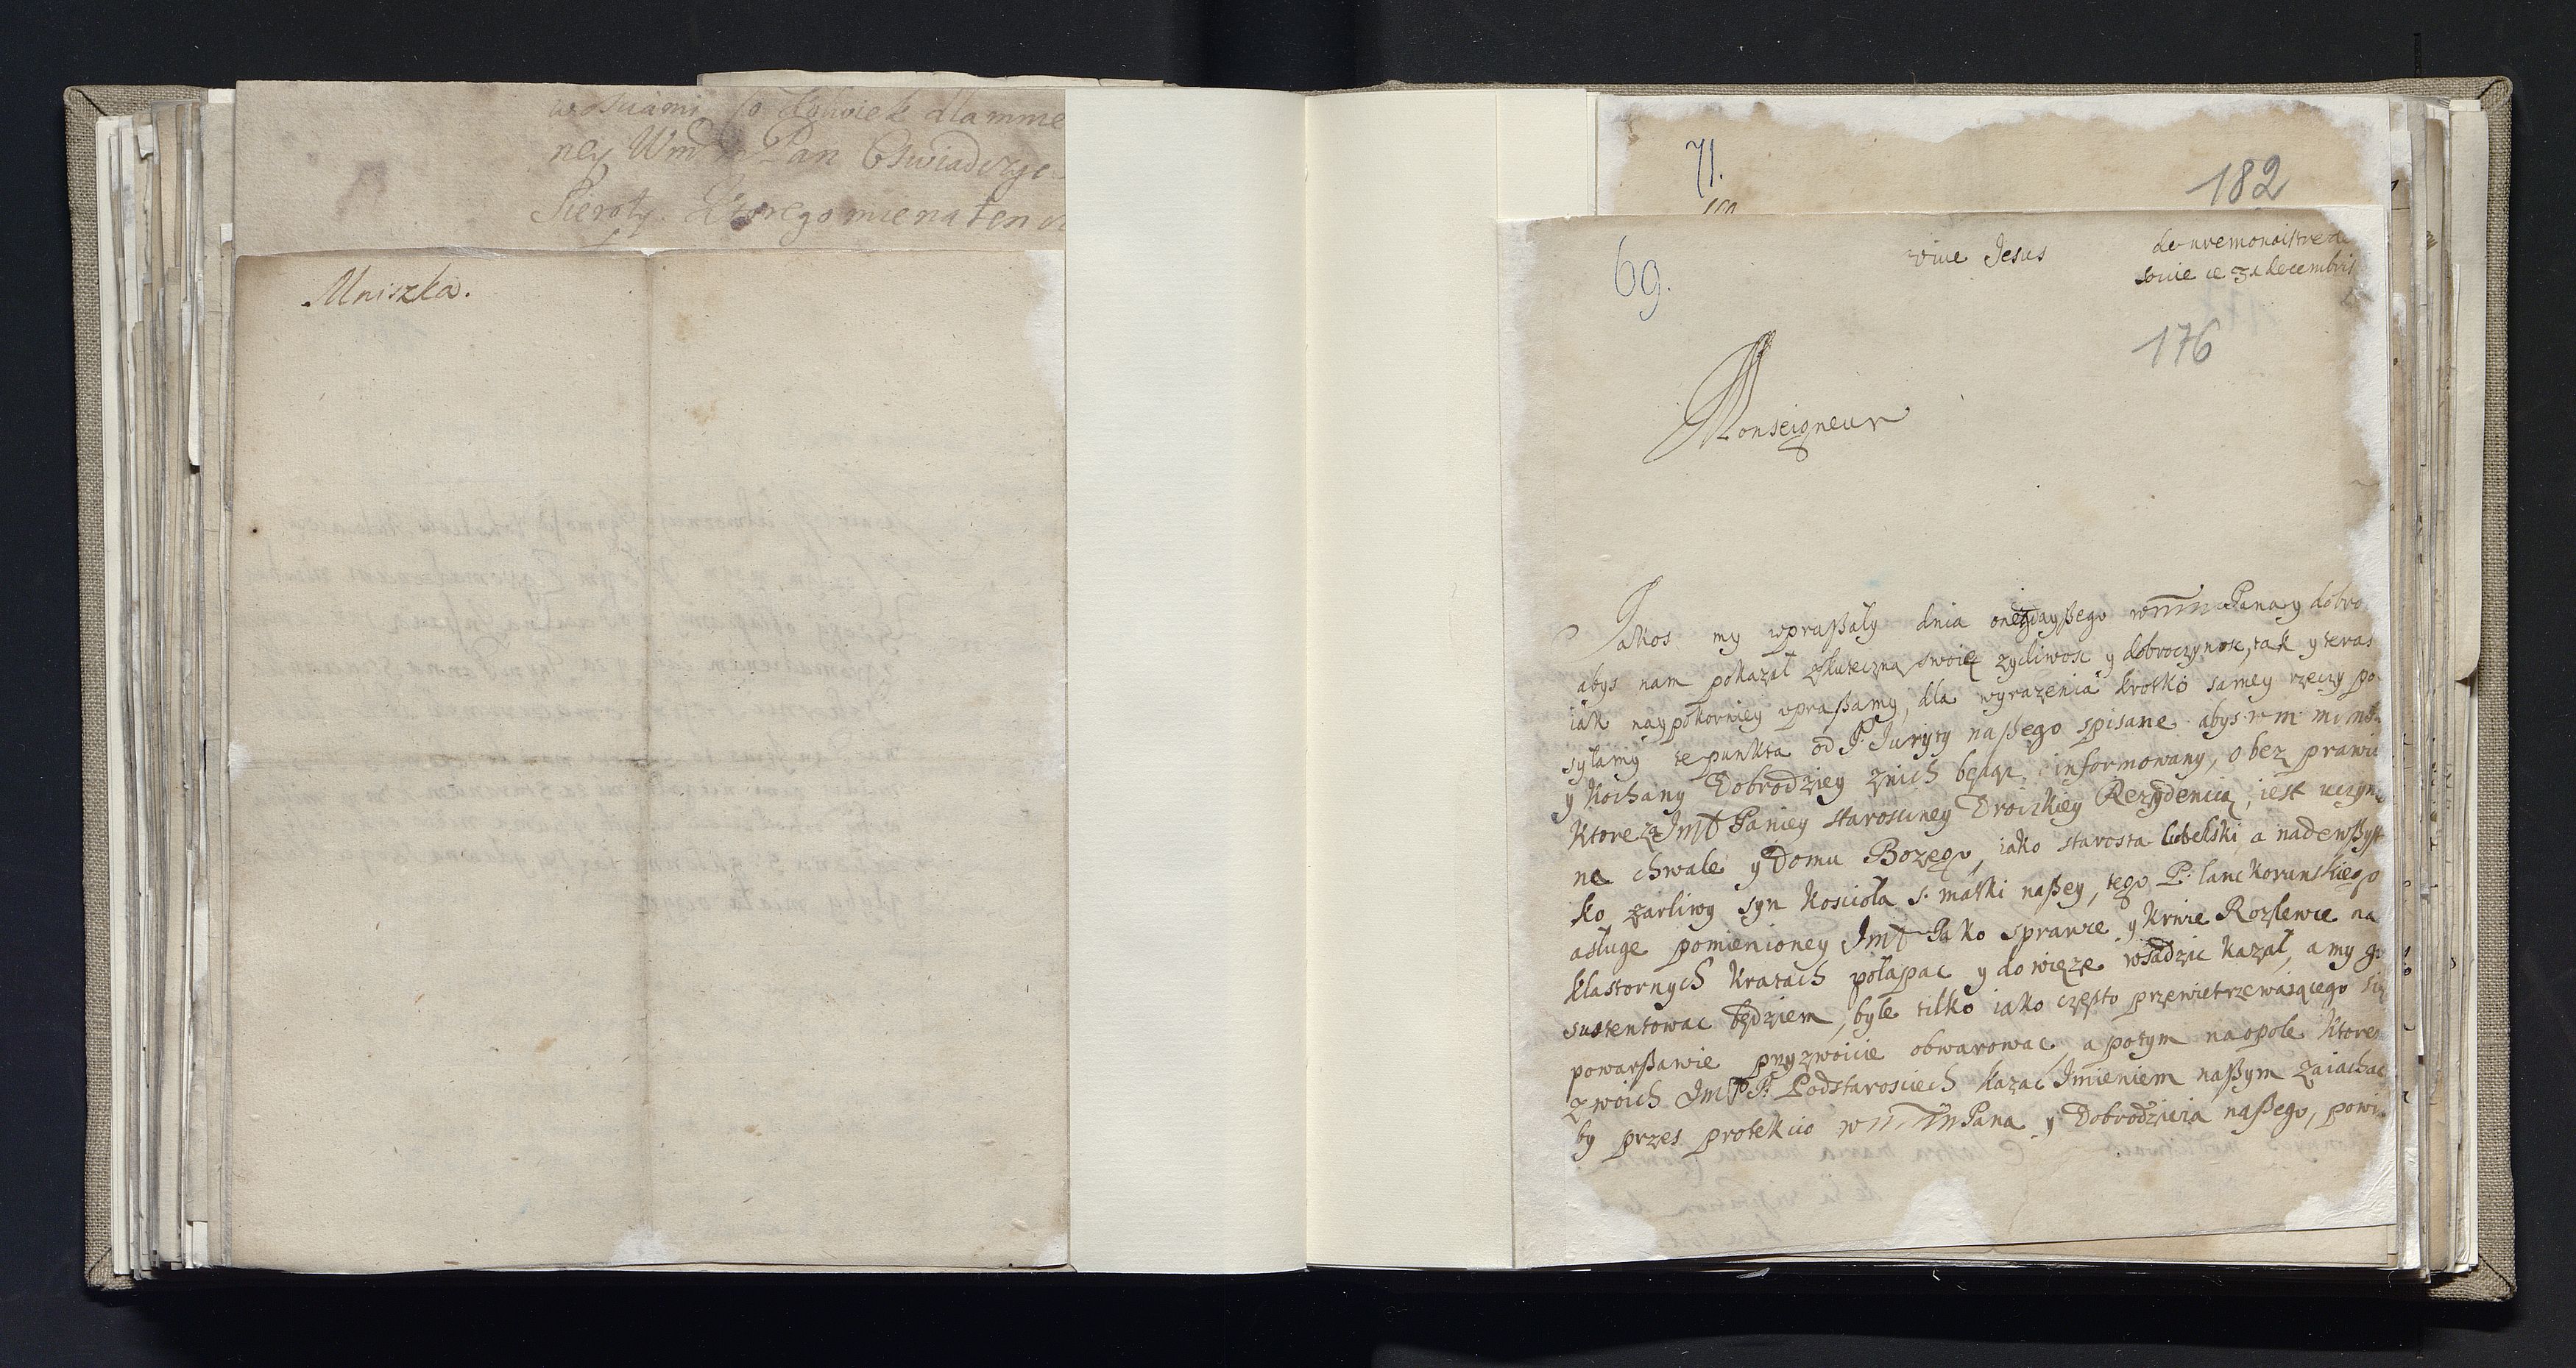 ney Wm Pan Oswiadczyc
Sieroty. Ktorego mie na ten
Mniszka.
71.
182
69.
vive Jesus
de nre monaistre de
sovie ce 31 decembris
176
Monseigneur
Jakos my vpraßały dnia onegdayßego wmm Pana y dobro
abys nam pokazał skuteczną swoię zycliwosc y dobroczynosc, tak y teras
iak naypokorniey vpraßamy, dla wyrazenia krotko samey rzeczy po
syłamy te punkta od P: Juryty naßego spisane abys wm
y kochany Dobrodziey znich będąc informowany, o bez prawie
ktore za Jmt Paniey starosciney Droickiey Rezydencią, iest uczyn
ne chwale y Domu Bozego, iako starosta lubelski, a nadewßyst
ko zarliwy syn kosciola s. matki naßey, tego P: lanckorunskiego
asługe pomienioney Jmt Pa ko sprawce y krwie Rozlewce na
klastornych kratach połapac y do więze wsadzic kazał, a my go
sustentowac będziem, byle tilko iako często przewietrzewaiącego się
powarßawie przyzwoicie obwarowac, a potym na opole ktore
zwoich Jm P P: Podstarosciech kazac Jmieniem naßym zaiachac
by przes protekcio wm m Pana y Dobrodzieia naßego, powi